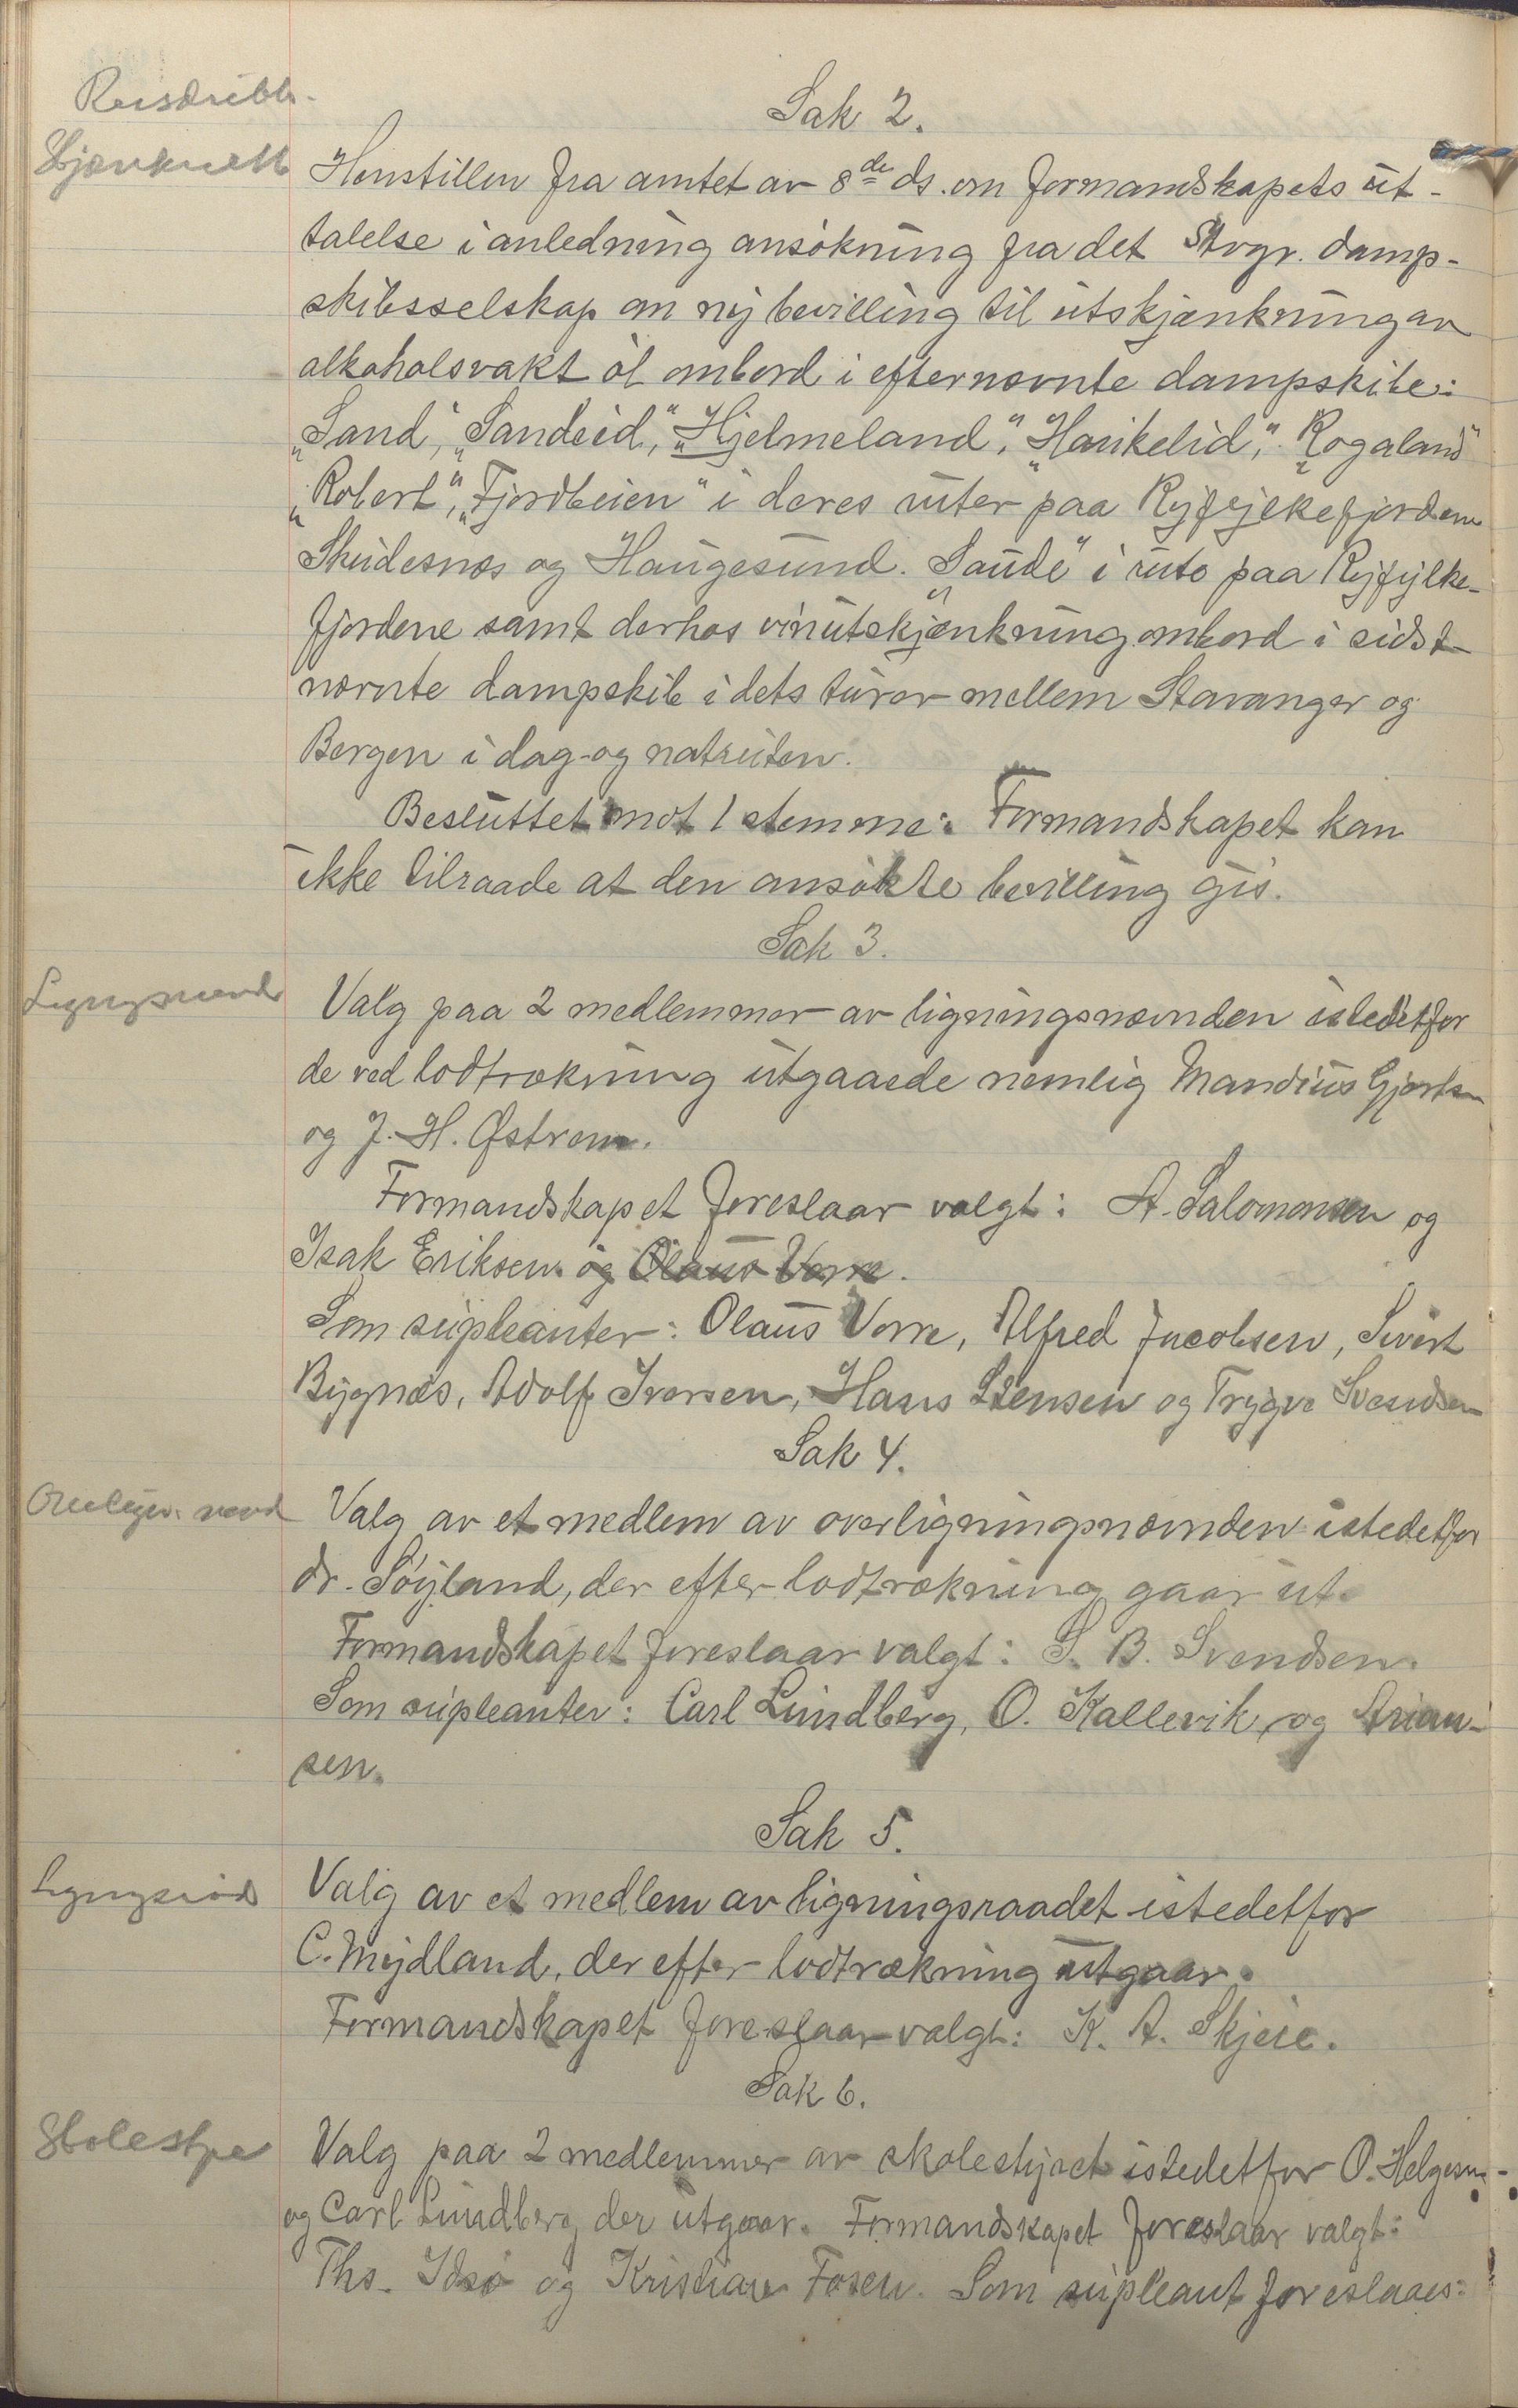 Rusdrikk-
Skjænkerett
Sak 2.
Henstillen fra amtet av 8de ds. om formandskapets ut-
talelse i anledning ansøkning fra det Stvgr. damp-
skibsselskap om ny bevilling til utskjænkning av
alkoholsvakt øl ombord i efternævnte dampskibe:
„Sand", „Sandeid", „Hjelmeland", „Haukelid", „Rogaland"
„Robert", „Fjordbeien" i deres ruter paa Ryfylkefjordene
Skudesnes og Haugesund. „Saude" i rute paa Ryfylke-
fjordene samt derhos vinutskjænkning ombord i sidst-
nævnte dampskib i dets turer mellem Stavanger og
Bergen i dag- og natruten.
Besluttet mot 1 stemme: Formandskapet kan
ikke tilraade at den ansøkte bevilling gis.
Sak 3.
Lignignsnævnd
Valg paa 2 medlemmer av ligningsnævnden istedetfor
de ved lodtrækning utgaaede nemlig Mandius Gjertsen
og J. H. Østrem.
Formandskapet foreslaar valgt: A. Salomonsen og
Isak Eriksen. og Olaus Vorre.
Som supleanter: Olaus Vorre, Alfred Jacobsen, Sivert
Bygnæs, Adolf Iversen, Hans Stensen og Trygve Svendsen
Sak 4.
Overlign. nævnd
Valg av et medlem av overligningsnævnden istedetfor
dr. Søyland, der efter lodtrækning gaar ut.
Formandskapet foreslaar valgt: S. B. Svendsen.
Som supleanter: Carl Lundberg, O. Kallevik og Arian-
sen.
Sak 5.
Ligngsråd
Valg av et medlem av ligningsraadet istedetfor
C. Mydland, der efter lodtrækning utgaar.
Formandskapet foreslaar valgt: K. A. Skjeie.
Sak 6.
Skolestyre
Valg paa 2 medlemmer av skolestyret istedetfor O. Helgesen
og Carl Lundberg der utgaar. Formandskapet foreslaar valgt:
Ths. Idsø og Kristian Fosen. Som supleant foreslaaes: